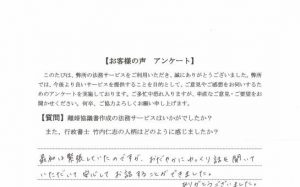 【お客様の声　アンケート】
このたびは、弊所の法務サービスをご利用いただき、誠にありがとうございました。弊所
では、今後より良いサービスを提供することを目的として、ご意見やご感想をお伺いするた
めのアンケートを実施しております。ご多忙中恐れ入りますが、率直なご意見・ご要望をお
聞かせください。何卒、ご協力よろしくお願い申し上げます。
【質問】離婚協議書作成の法務サービスはいかがでしたか？
また、行政書士 竹内仁志の人柄はどのように感じましたか？
最初は緊張していたのですが、おだやかにゆっくり話を聞いて
いただいて安心してお話することができました。
ありがとうございました。